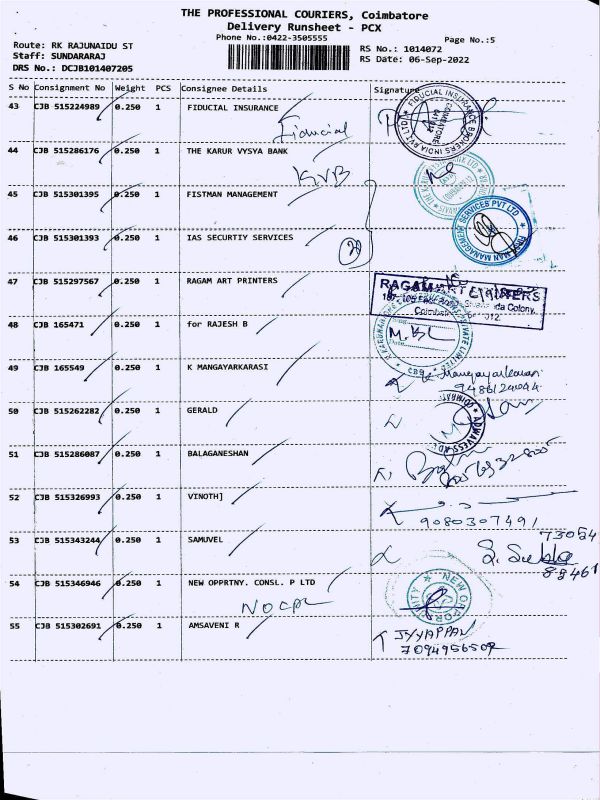 THE PROFESSIONAL COURIERS, Coimbatore
Delivery Runsheet - PCX
Phone No.:0422-3505555
Page No.:5
Route: RK RAJUNAIDU ST
RS No.: 1014072
Staff: SUNDARARAJ
RS Date: 06-Sep-2022
DRS No.: DCJB101407205
S No Consignment No Weight PCS Consignee Details Signature
43 CJB 515224989 0.250 1 FIDUCTAL INSURANCE
FIDUCIAL INSURANCE BROKERS INDIA PVT LTD
COIMBATORE
Fiducial
44 CJB 515286176 0.250 1 THE KARUR VYSYA BANK
KVB
45 CJB 515301395 0.250 1 FISTMAN MANAGEMENT
MANAGEMENT SERVICES PVT LTD
46 CJB 515301393 0.250 1 IAS SECURTIY SERVICES
47 CJB 515297567 1 RAGAM ART PRINTERS
Colony,
48 CJB 165471 0.250 1 for RAJESH B
M.BL
49 CJB 165549 0.250 1 K MANGAYARKARASI
50 CJB 515262282 0.250 1 GERALD
51 CJB 515286087 0.250 1 BALAGANESHAN
52 CJB 515326993 0.250 1 VINOTH]
9080307491
53 CJB 515343244 0.250 1 SAMUVEL
54 CJB 515346946 0.250 1 NEW OPPRTNY. CONSL. P LTD
55 CJB 515302691 0.250 1 AMSAVENI R
IYYAPPAN